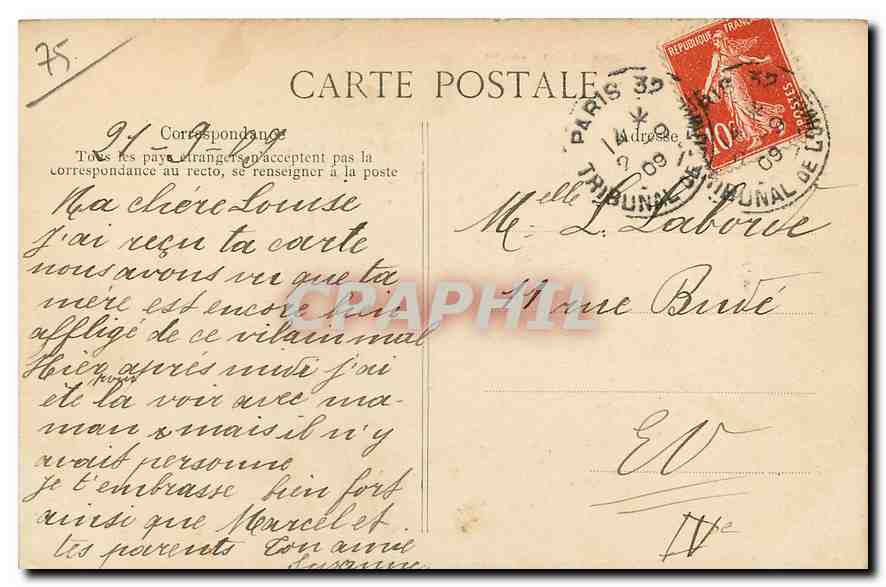 75
CARTE POSTALE
Correspondance
21-9-09
Tous les pays étrangers n'acceptent pas la
correspondance au recto, se renseigner à la poste
Ma chère Louise
J'ai reçu ta carte
nous avons vu que ta
mère est encore bien
affligé de ce vilain mal
Hier après midi j'ai
été pour la voir avec ma-
man mais il n'y
avait personne
Je t'embrasse bien fort
ainsi que Marcel et
tes parents Ton amie
Suzanne
Adresse
Melle L. Laborde
11 rue Budé
EV
IVe
REPUBLIQUE FRANÇAISE
10c
POSTES
PARIS 32
TRIBUNAL DE
09
PARIS 32
TRIBUNAL DE COM
09
CPAPHIL